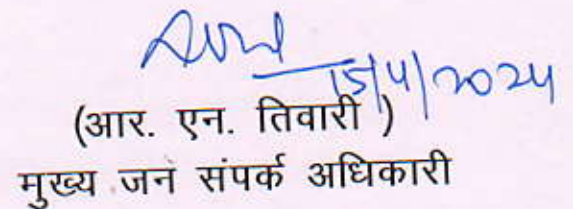 15/4/2024
(आर. एन. तिवारी )
मुख्य जन संपर्क अधिकारी